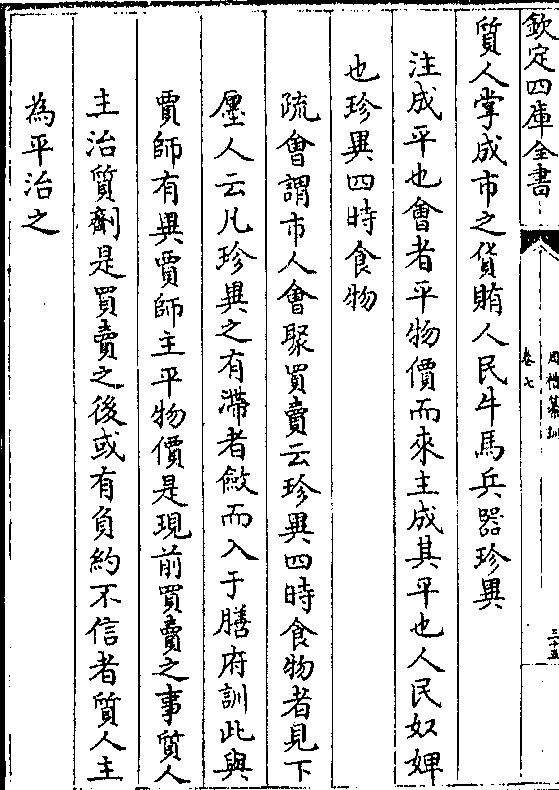 欽定四庫全書
周禮纂訓
卷七
三十五
質人掌成市之貨賄人民牛馬兵器珍異
注成平也會者平物價而來主成其平也人民奴婢
也珍異四時食物
疏會謂市人會聚買賣云珍異四時食物者見下
廛人云凡珍異之有滯者斂而入于膳府訓此與
賈師有異賈師主平物價是現前買賣之事質人
主治質劑是買賣之後或有負約不信者質人主
為平治之